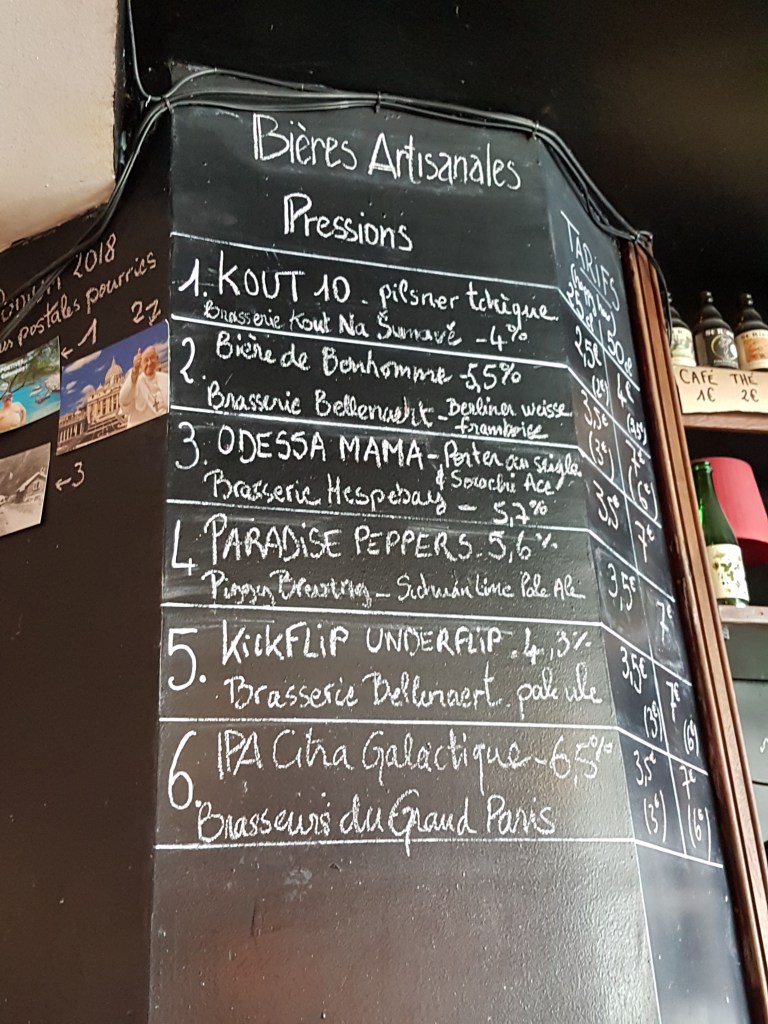 Bières Artisanales
Pressions
TARIFS
25cl 50cl
1. KOUT 10 - pilsner tchèque
Brasserie Kout Na Šumavě - 4%
2,5€ 4€
(2€)
2. Bière de Bonhomme - 5,5%
Brasserie Bellenaert - Berliner weisse
framboise
3,5€ 7€
(3€) (6€)
3. ODESSA MAMA - Porter au seigle
& Sorachi Ace
Brasserie Hespebay - 5,7%
3,5 7€
4 PARADISE PEPPERS - 5,6%
Piggy Brewing - Lime Pale Ale
3,5 7€
5. KickFLiP UNDERFLIP - 4,3%
Brasserie Bellenaert pale ale
3,5€ 7€
(3€) (6€)
6. IPA Citra Galactique - 6,5%
Brasseurs du Grand Paris
3,5€ 7€
(3€) (6€)
2018
postales pourries
1
2
3
CAFÉ THÉ
1€ 2€